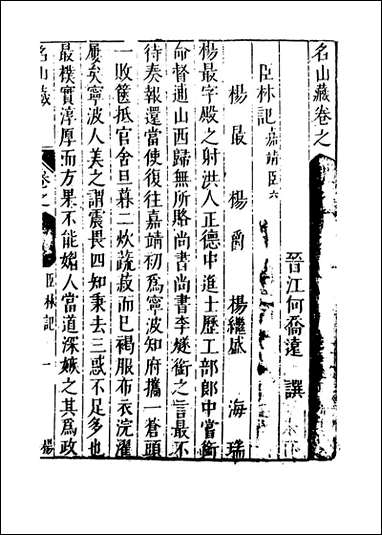 名山藏卷之
晉江何喬遠 譔
臣林記 嘉靖臣六
楊最 楊爵 楊繼盛 海瑞
楊最字殿之射洪人正德中進士歷工部郎中嘗銜
命督逋山西歸無所賂尚書尚書李鐩銜之言最不
待奏報還當使復往嘉靖初爲寧波知府攜一蒼頭
一敗篋抵官舍旦暮二炊蔬菽而已褐服布衣浣濯
屢矣寧波人美之謂震畏四知秉去三惑不足多也
最樸實淳厚而方果不能媚人當道深嫉之其爲政
名山藏 卷之 臣林記 一 楊